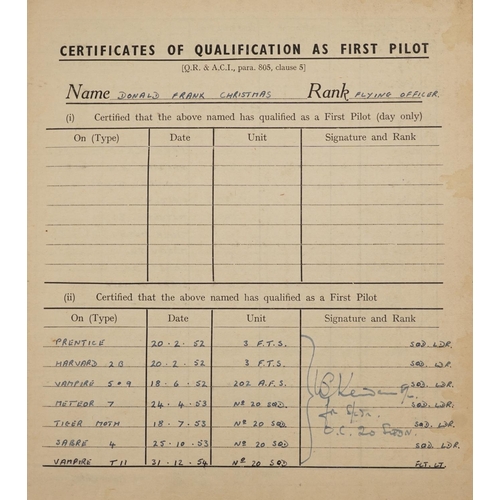 CERTIFICATES OF QUALIFICATION AS FIRST PILOT
[Q.R. & A.C.I., para. 805, clause 5]
Name DONALD FRANK CHRISTMAS Rank FLYING OFFICER.
(i) Certified that the above named has qualified as a First Pilot (day only)
On (Type) Date Unit Signature and Rank
(ii) Certified that the above named has qualified as a First Pilot
On (Type) Date Unit Signature and Rank
PRENTICE 20 · 2 · 52 3 F.T.S. SQD. LDR.
HARVARD 2B 20 · 2 · 52 3 F.T.S. SQD. LDR.
VAMPIRE 5 & 9 18 · 6 · 52 202 A.F.S. SQD. LDR.
METEOR 7 24 · 4 · 53 No 20 SQD. SQD. LDR.
TIGER MOTH 18 · 7 · 53 No 20 SQD O.C. 20 SQDN. SQD. LDR.
SABRE 4 25 · 10 · 53 No 20 SQD SQD LDR.
VAMPIRE T11 31 · 12 · 54 No 20 SQD FLT. LT.